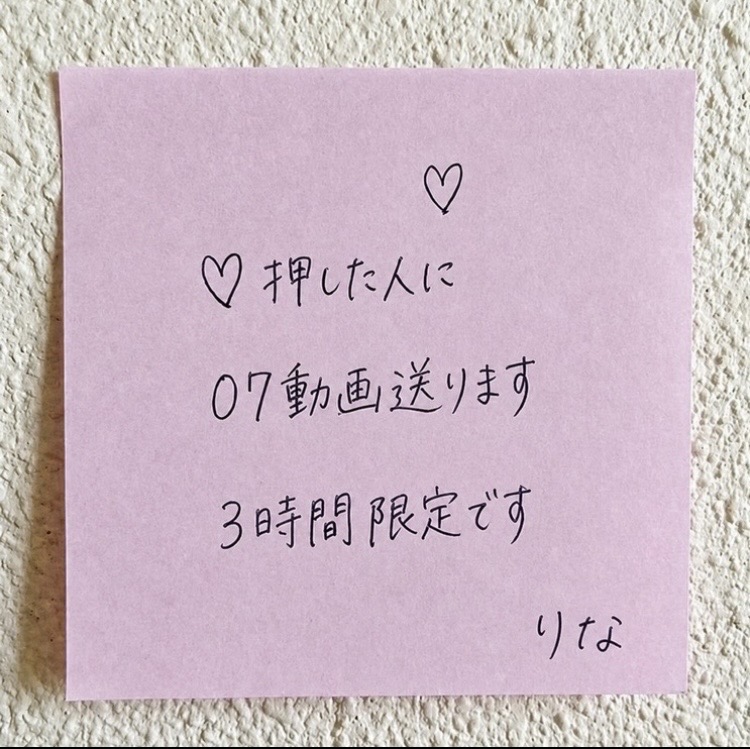 ♡
♡押した人に
07動画送ります
3時間限定です
りな